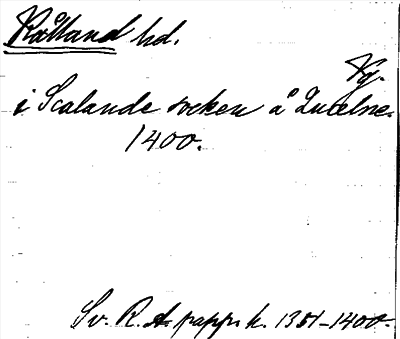 Kålland hd.
Vg.
i Scalande socken å Quelne.
1400.
Sv. R. A. pappr k. 1351-1400.